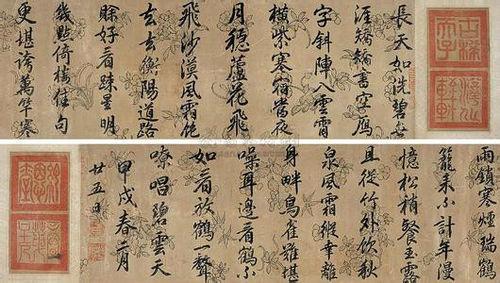 長天如洗碧無
涯矯矯書空雁
字斜陣入雲霄
橫紫塞宿當夜
月穩蘆花飛
飛沙漠風霜飽
去去衡陽道路
賒好看疎星明
幾點倚樓佳句
更堪誇萬竿寒
雨鎖寒煙瑞鶴
籠來不計年漫
憶松梢餐玉露
且從竹外飲秋
泉風霜縱幸離
身畔鳥雀難堪
噪耳邊看鶴不
如看放鶴一聲
嘹唱碧雲天
甲戌春二月
廿五日